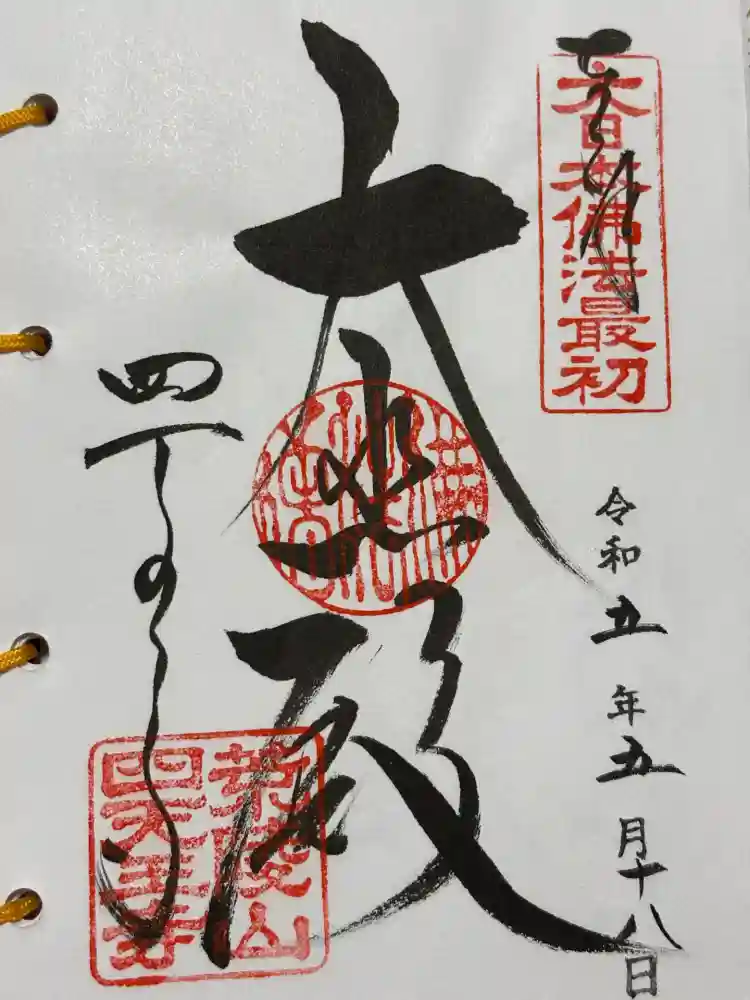 奉拝
大日本佛法最初
令和五年五月十八日
大悲殿
四天王寺
荒陵山
四天王寺